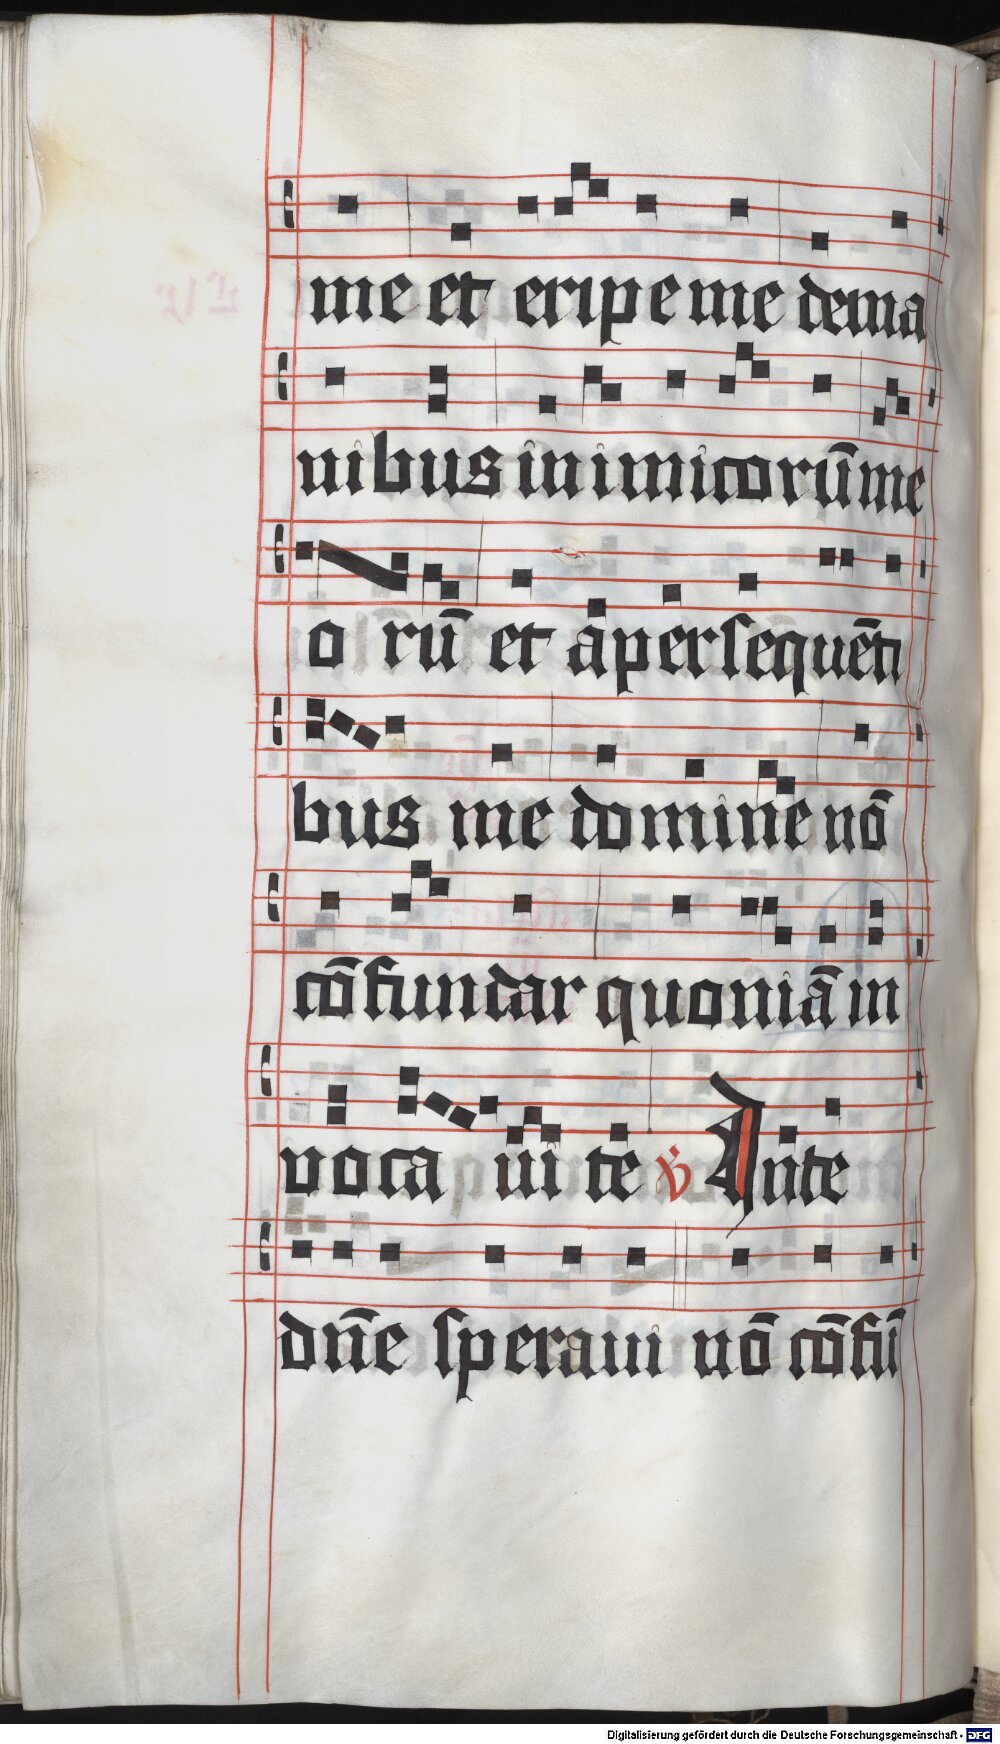 me et eripe me de ma
nibus inimicorū me
o rū et a perseq̄uēti
bus me domine nō
cōfundar quoniā in
voca ui te ℣ In te
dn̄e speraui nō cōfū
Digitalisierung gefördert durch die Deutsche Forschungsgemeinschaft - DFG